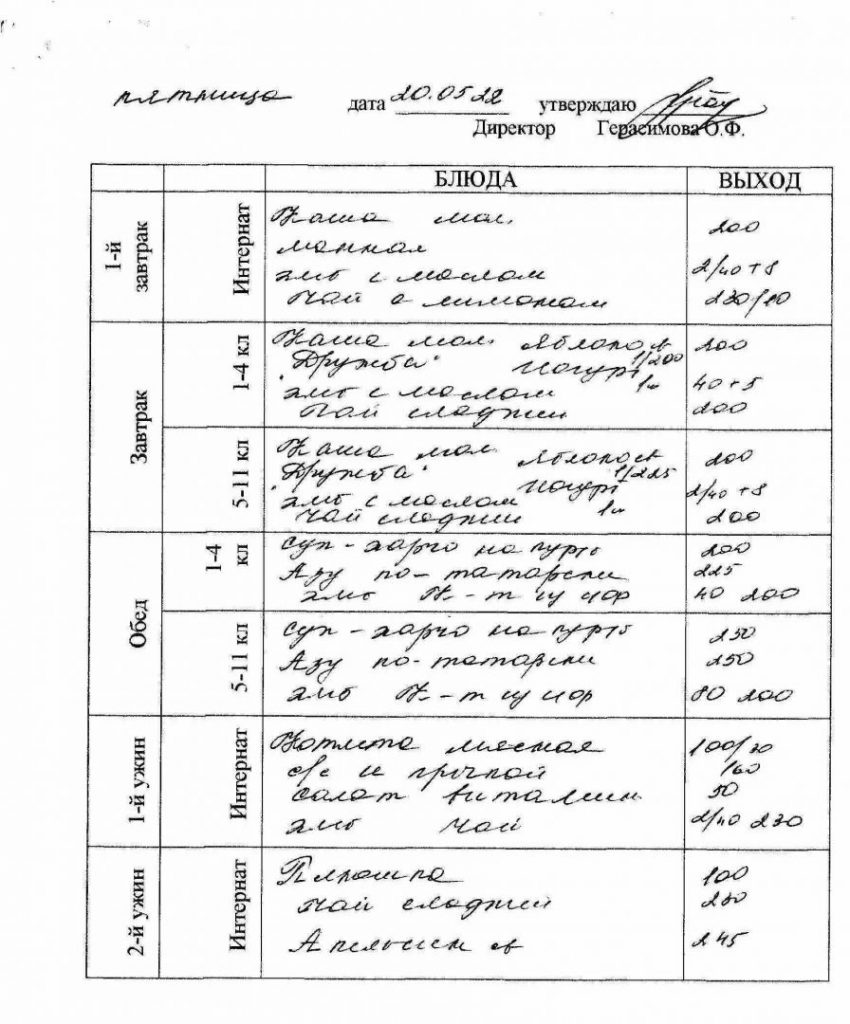 пятница дата 20.05.22 утверждаю
Директор Герасимова О.Ф.
БЛЮДА ВЫХОД
1-й завтрак
Интернат
Каша мол. 200
манная
хлеб с маслом 2/40+8
чай с лимоном 230/10
Завтрак
1-4 кл
Каша мол. Яблоко св 200
"Дружба" 1/200
Йогурт 1
хлеб с маслом 40+5
чай сладкий 200
5-11 кл
Каша мол. Яблоко св 200
"Дружба" 1/225
Йогурт 1
хлеб с маслом 2/40+8
чай сладкий 200
Обед
1-4 кл
Суп-харчо на курб 200
Азу по-татарски 225
хлеб К-т 40 200
5-11 кл
Суп-харчо на курб 250
Азу по-татарски 250
хлеб К-т 80 200
1-й ужин
Интернат
Котлета мясная 100/30
с/с и гречкой 160
салат витамин. 50
хлеб чай 2/40 230
2-й ужин
Интернат
Плюшка 100
чай сладкий 230
Апельсин св 245